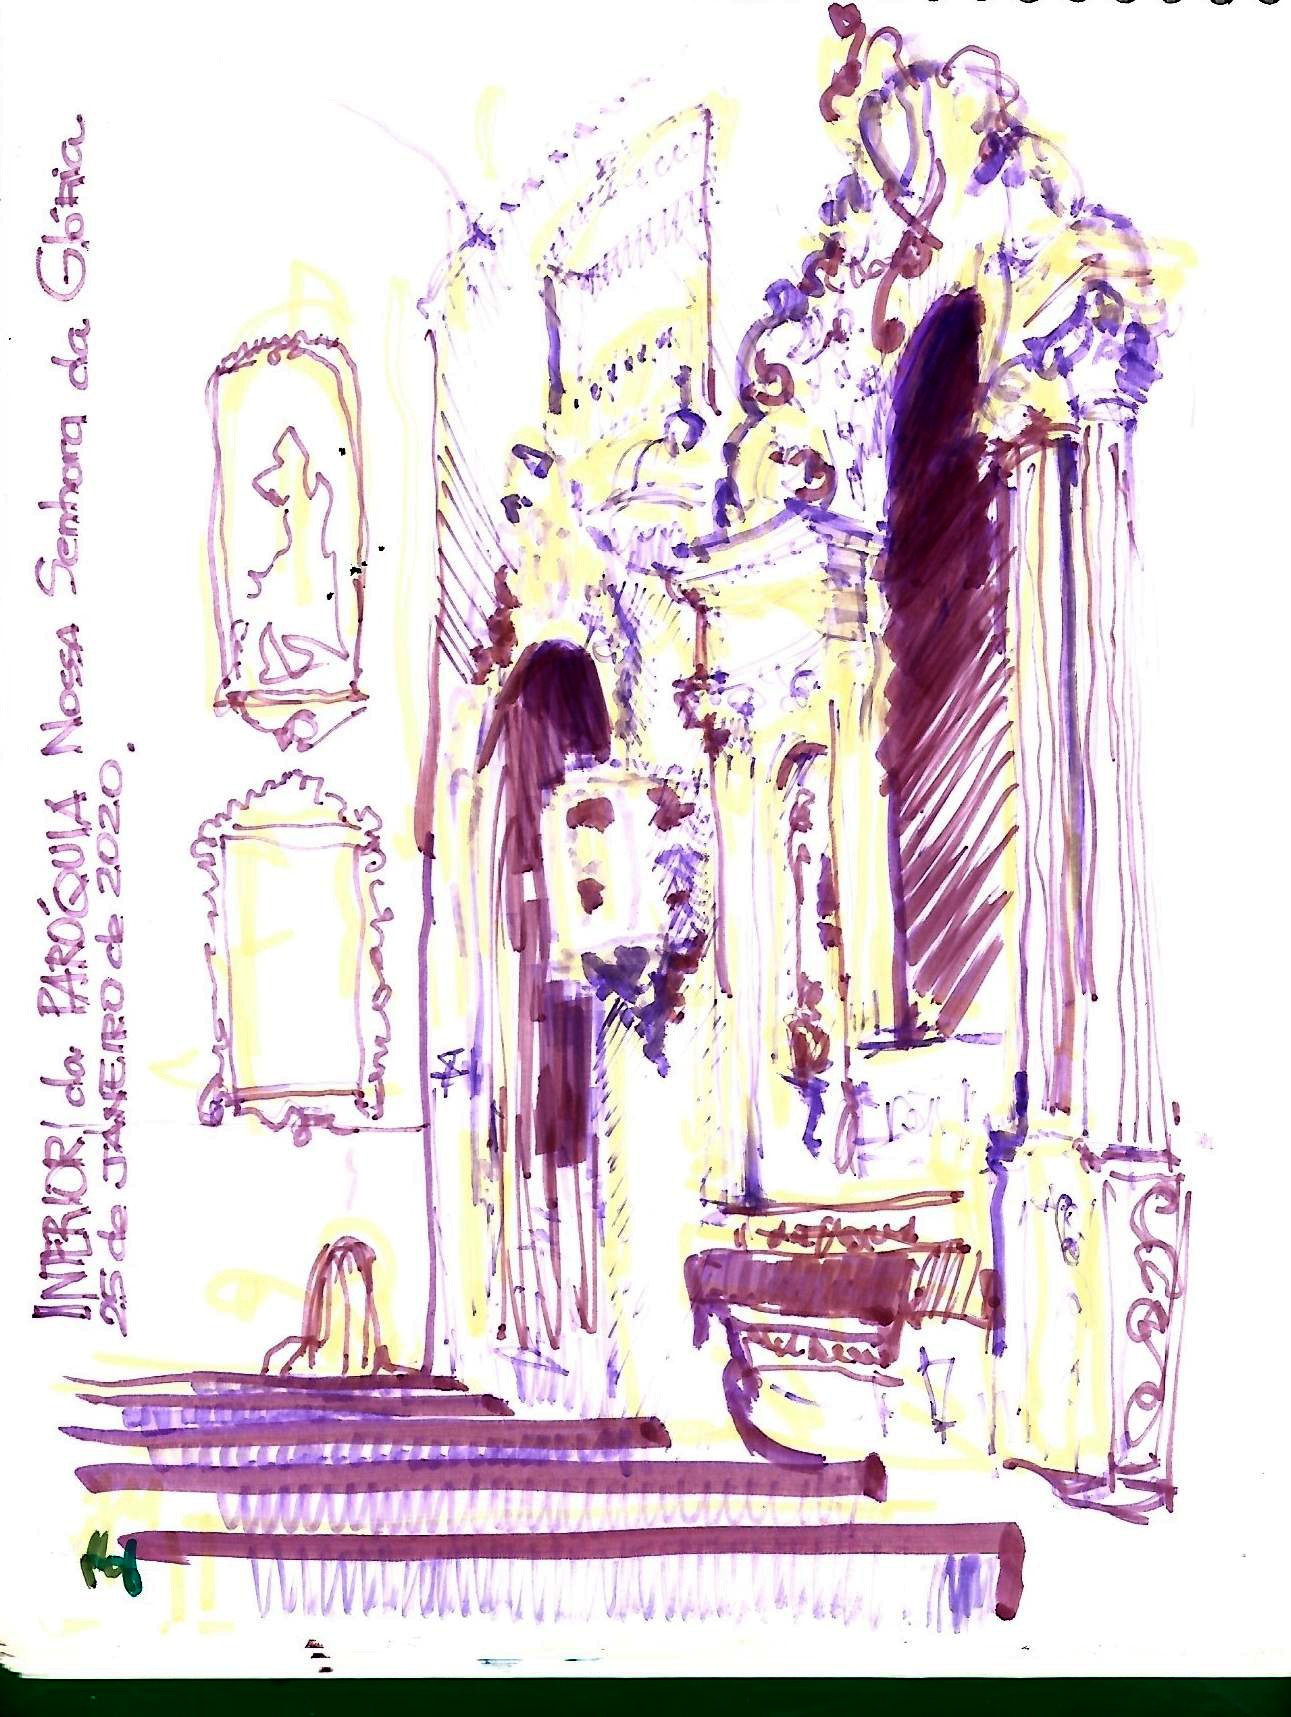 INTERIOR da PARÓQUIA NOSSA Senhora da Glória
25 de JANEIRO de 2020.